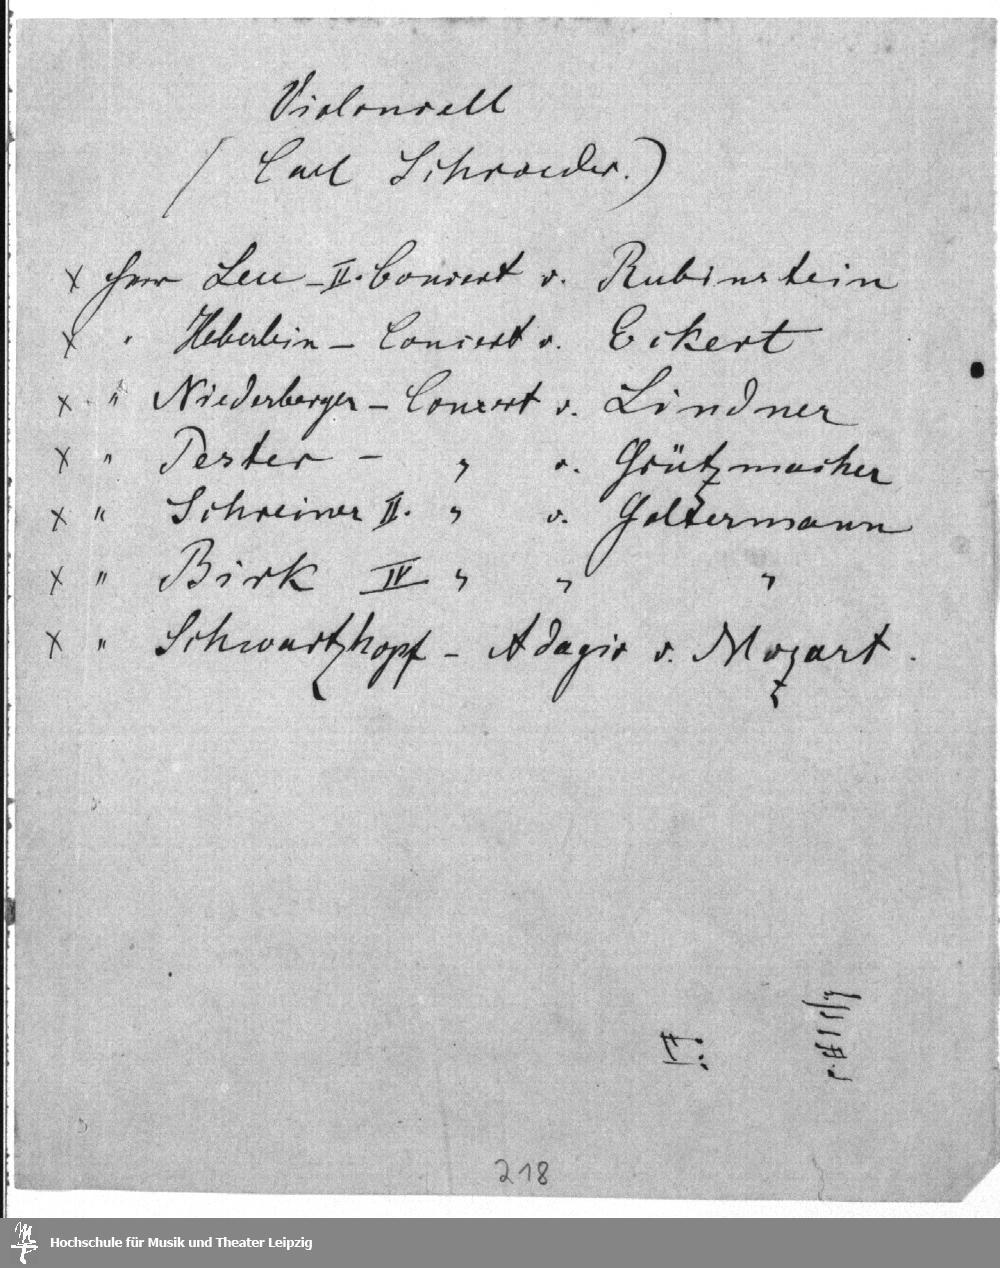 Violoncell
(Carl Schroeder.)
x Herr Leu – II. Concert v. Rubinstein
x " Heberlein – Concert v. Eckert
x " Niederberger – Concert v. Lindner
x " Pester – " v. Grützmacher
x " Schreiner II. " v. Goltermann
x " Birk IV " " "
x " Schwartzkopf – Adagio v. Mozart.
218
Hochschule für Musik und Theater Leipzig